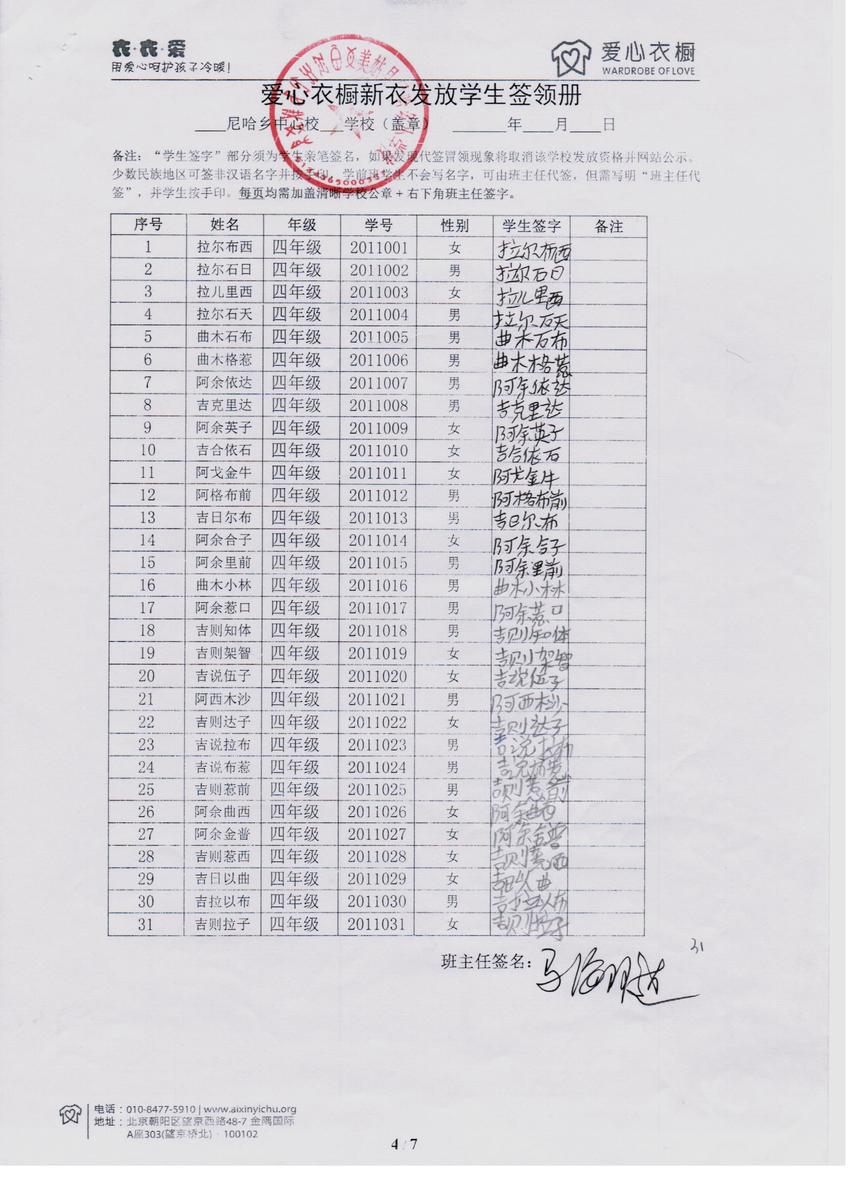 衣·衣·爱
用爱心呵护孩子冷暖!
爱心衣橱
WARDROBE OF LOVE
爱心衣橱新衣发放学生签领册
尼哈乡中心校 学校(盖章) 年 月 日
备注:“学生签字”部分须为学生亲笔签名,如果发现代签冒领现象将取消该学校发放资格并网站公示。
少数民族地区可签非汉语名字并按手印。学前班学生不会写名字,可由班主任代签,但需写明“班主任代
签”,并学生按手印。每页均需加盖清晰学校公章+右下角班主任签字。
序号 姓名 年级 学号 性别 学生签字 备注
1 拉尔布西 四年级 2011001 女 拉尔布西
2 拉尔石日 四年级 2011002 男 拉尔石日
3 拉儿里西 四年级 2011003 女 拉儿里西
4 拉尔石天 四年级 2011004 男 拉尔石天
5 曲木石布 四年级 2011005 男 曲木石布
6 曲木格惹 四年级 2011006 男 曲木格惹
7 阿余依达 四年级 2011007 男 阿余依达
8 吉克里达 四年级 2011008 男 吉克里达
9 阿余英子 四年级 2011009 女 阿余英子
10 吉合依石 四年级 2011010 女 吉合依石
11 阿戈金牛 四年级 2011011 女 阿戈金牛
12 阿格布前 四年级 2011012 男 阿格布前
13 吉日尔布 四年级 2011013 男 吉日尔布
14 阿余合子 四年级 2011014 女 阿余合子
15 阿余里前 四年级 2011015 男 阿余里前
16 曲木小林 四年级 2011016 男 曲木小林
17 阿余惹口 四年级 2011017 男 阿余惹口
18 吉则知体 四年级 2011018 男 吉则知体
19 吉则架智 四年级 2011019 女 吉则架智
20 吉说伍子 四年级 2011020 女 吉说伍子
21 阿西木沙 四年级 2011021 男 阿西木沙
22 吉则达子 四年级 2011022 女 吉则达子
23 吉说拉布 四年级 2011023 男 吉说拉布
24 吉说布惹 四年级 2011024 男 吉说布惹
25 吉则惹前 四年级 2011025 男 吉则惹前
26 阿余曲西 四年级 2011026 女 阿余曲西
27 阿余金普 四年级 2011027 女 阿余金普
28 吉则惹西 四年级 2011028 女 吉则惹西
29 吉日以曲 四年级 2011029 女 吉日以曲
30 吉拉以布 四年级 2011030 男 吉拉以布
31 吉则拉子 四年级 2011031 女 吉则拉子
班主任签名:
31
电话:010-8477-5910 | www.aixinyichu.org
地址:北京朝阳区望京西路48-7 金隅国际
A座303(望京桥北)·100102
4 / 7